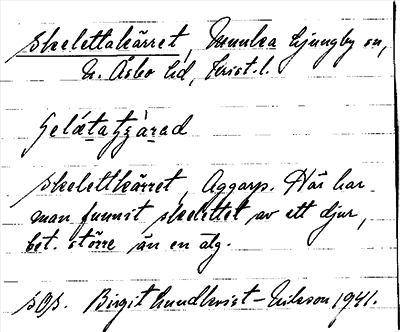 Skelettakärret, Munka Ljungby sn,
N. Åsbo hd, Krist. l.
Skelettkärret, Aggarp. Här har
man funnit skelettet av ett djur,
bet. större än en älg.
sgs. Birgit Lundkvist-Erikson 1941.